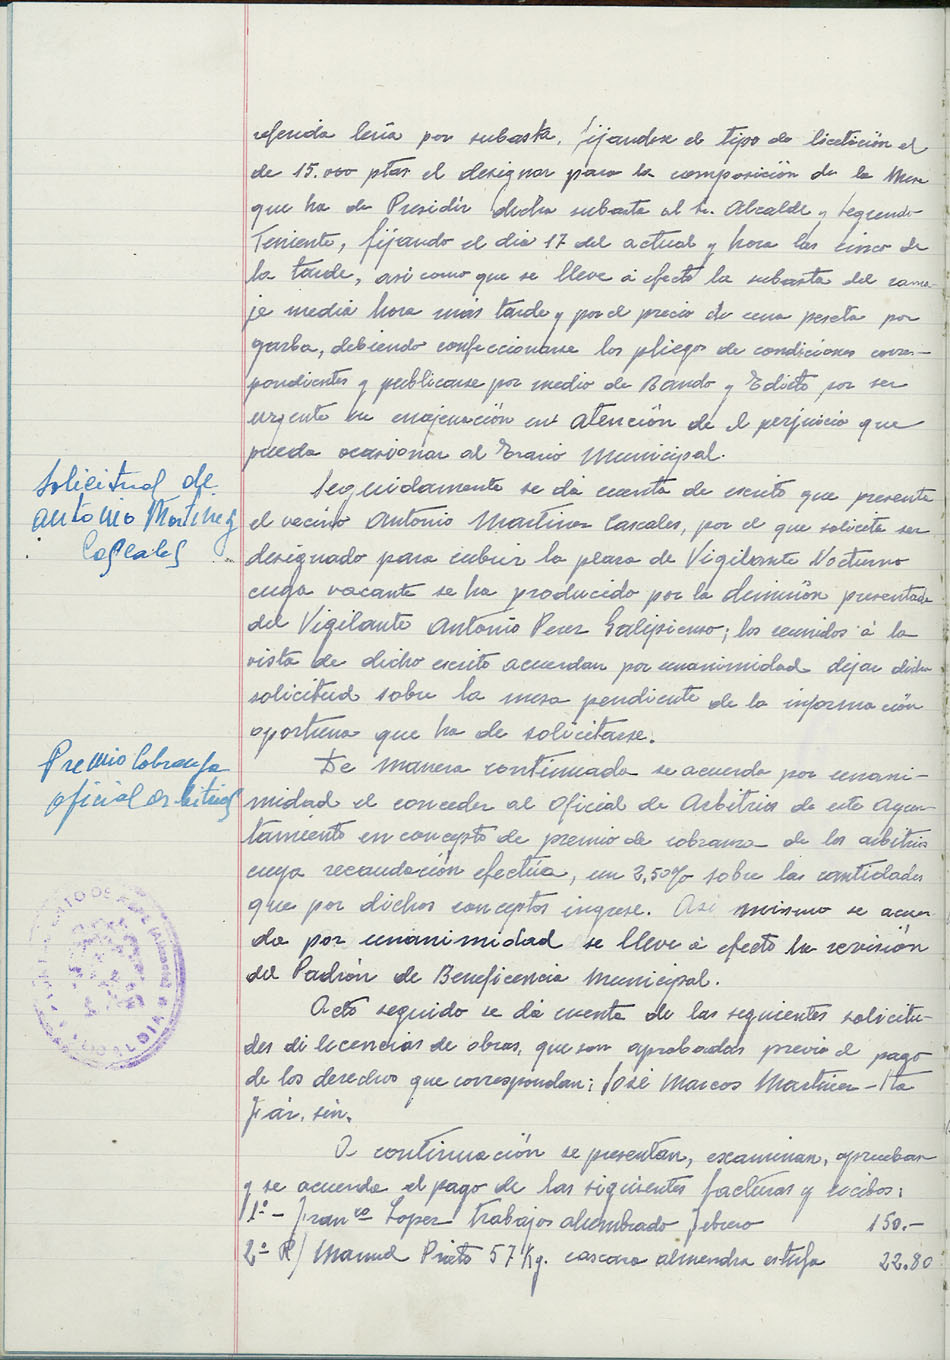 referida leña por subasta, fijandose el tipo de licitación el
de 15.000 ptas el designar para la composición de la Mesa
que ha de Presidir dicha subasta al Sr. Alcalde y segundo
Teniente, fijando el dia 17 del actual y hora las cinco de
la tarde, asi como que se lleve á efecto la subasta del rama-
je media hora más tarde y por el precio de una peseta por
garba, debiendo confeccionarse los pliegos de condiciones corres-
pondientes y publicarse por medio de Bando y Edicto por ser
urgente su enajenación en atención de el perjuicio que
pueda ocasionar al Erario Municipal.
Solicitud de
Antonio Martinez
Cascales
Seguidamente se dá cuenta de escrito que presenta
el vecino Antonio Martinez Cascales, por el que solicita ser
designado para cubrir la plaza de Vigilante Nocturno
cuya vacante se ha producido por la dimisión presentada
del Vigilante Antonio Perez Galipienso; los reunidos á la
vista de dicho escrito acuerdan por unanimidad dejar dicha
solicitud sobre la mesa pendiente de la información
oportuna que ha de solicitarse.
Premio Cobranza
oficial arbitrios
De manera continuada se acuerda por unani-
midad el conceder al Oficial de Arbitrios de este Ayun-
tamiento en concepto de premio de cobranza de los arbitrios
cuya recaudación efectúa, un 2,50% sobre las cantidades
que por dichos conceptos ingrese. Asi mismo se acuer
da por unanimidad se lleve á efecto la revisión
del Padrón de Beneficencia Municipal.
Acto seguido se dá cuenta de las seguientes solicitu-
des di licencias de obras, que son aprobadas previo el pago
de los derechos que correspondan: José Marcos Martinez - Pta
A continuación se presentan, examinan, aprueban
y se acuerda el pago de las siguientes facturas y recibos:
1º - Franco Lopez trabajos alumbrado febrero 150.-
2º R/ Manuel Prieto 57 Kg. cascara almendra estufa 22.80
ALCALDIA